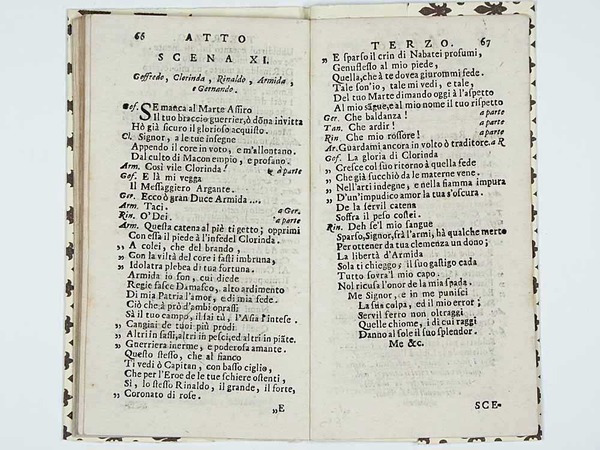 66 ATTO
SCENA XI.
Goffredo, Clorinda, Rinaldo, Armida,
e Gernando.
Gof. SE manca al Marte Assiro
Il tuo braccio guerrier, ò dōna invitta
Hò già sicuro il glorioso acquisto.
Cl. Signor, a le tue insegne
Appendo il core in voto, e m'allontano.
Dal culto di Macon empio, e profano.
Arm. Così vile Clorinda! a parte
Gof. E là mi vegga
Il Messaggiero Argante.
Ger. Ecco ò gran Duce Armida ....
Arm. Taci. a Ger.
Rin. O' Dei. a parte
Arm. Questa catena al piè ti getto; opprimi
Con essa il piede à l'infedel Clorinda.
„ A colei, che del brando,
„ Con la viltà del core i fasti imbruna,
„ Idolatra plebea di tua fortuna.
Armida io son, cui diede
Regie fasce Damasco, alto ardimento
Di mia Patria l'amor, e di mia fede.
Ciò che à prò d'ambi oprassi
Sà il tuo campo, il sai tù, l'Asia l'intese.
„ Cangiai de tuoi più prodi
„ Altri in sassi, altri in pesci, ed altri in piāte.
„ Guerriera inerme, e poderosa amante.
Questo stesso, che al fianco
Ti vedi ò Capitan, con basso ciglio,
Che per l'Eroe de le tue schiere ostenti,
Sì, lo stesso Rinaldo, il grande, il forte,
„ Coronato di rose.
„E
TERZO. 67
„ E sparso il crin di Nabatei profumi,
Genuflesso al mio piede,
Quella, che à te dovea giurommi fede.
Tale son'io, tale mi vedi, e tale,
Del tuo Marte dimando oggi à l'aspetto
Al mio sāgue, e al mio nome il tuo rispetto
Ger. Che baldanza! a parte
Tan. Che ardir! a parte
Rin. Che mio rossore! a parte
Ar. Guardami ancora in volto ò traditore. a R
Gof. La gloria di Clorinda
„ Cresce col suo ritorno à quella fede
„ Che già succhiò da le materne vene.
„ Nell'arti indegne, e nella fiamma impura
„ D'un'impudico amor la tua s'oscura.
De la servil catena
Soffra il peso costei.
Rin. Deh se'l mio sangue
Sparso, Signor, frà l'armi, hà qualche merto
Per ottener da tua clemenza un dono;
La libertà d'Armida
Sola ti chieggo; il suo gastigo cada
Tutto sovra'l mio capo.
Nol ricusa l'onor de la mia spada.
Me Signor, e in me punisci
La sua colpa, ed il mio error;
Servil ferro non oltraggi
Quelle chiome, i di cui raggi
Danno al sole il suo splendor.
Me &c.
SCE-